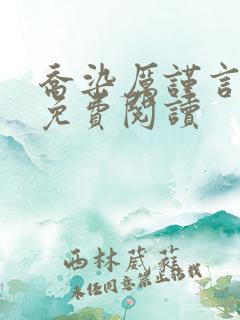 喬染厲謹言
免費閱讀
西林葳蕤
未经同意禁止转载